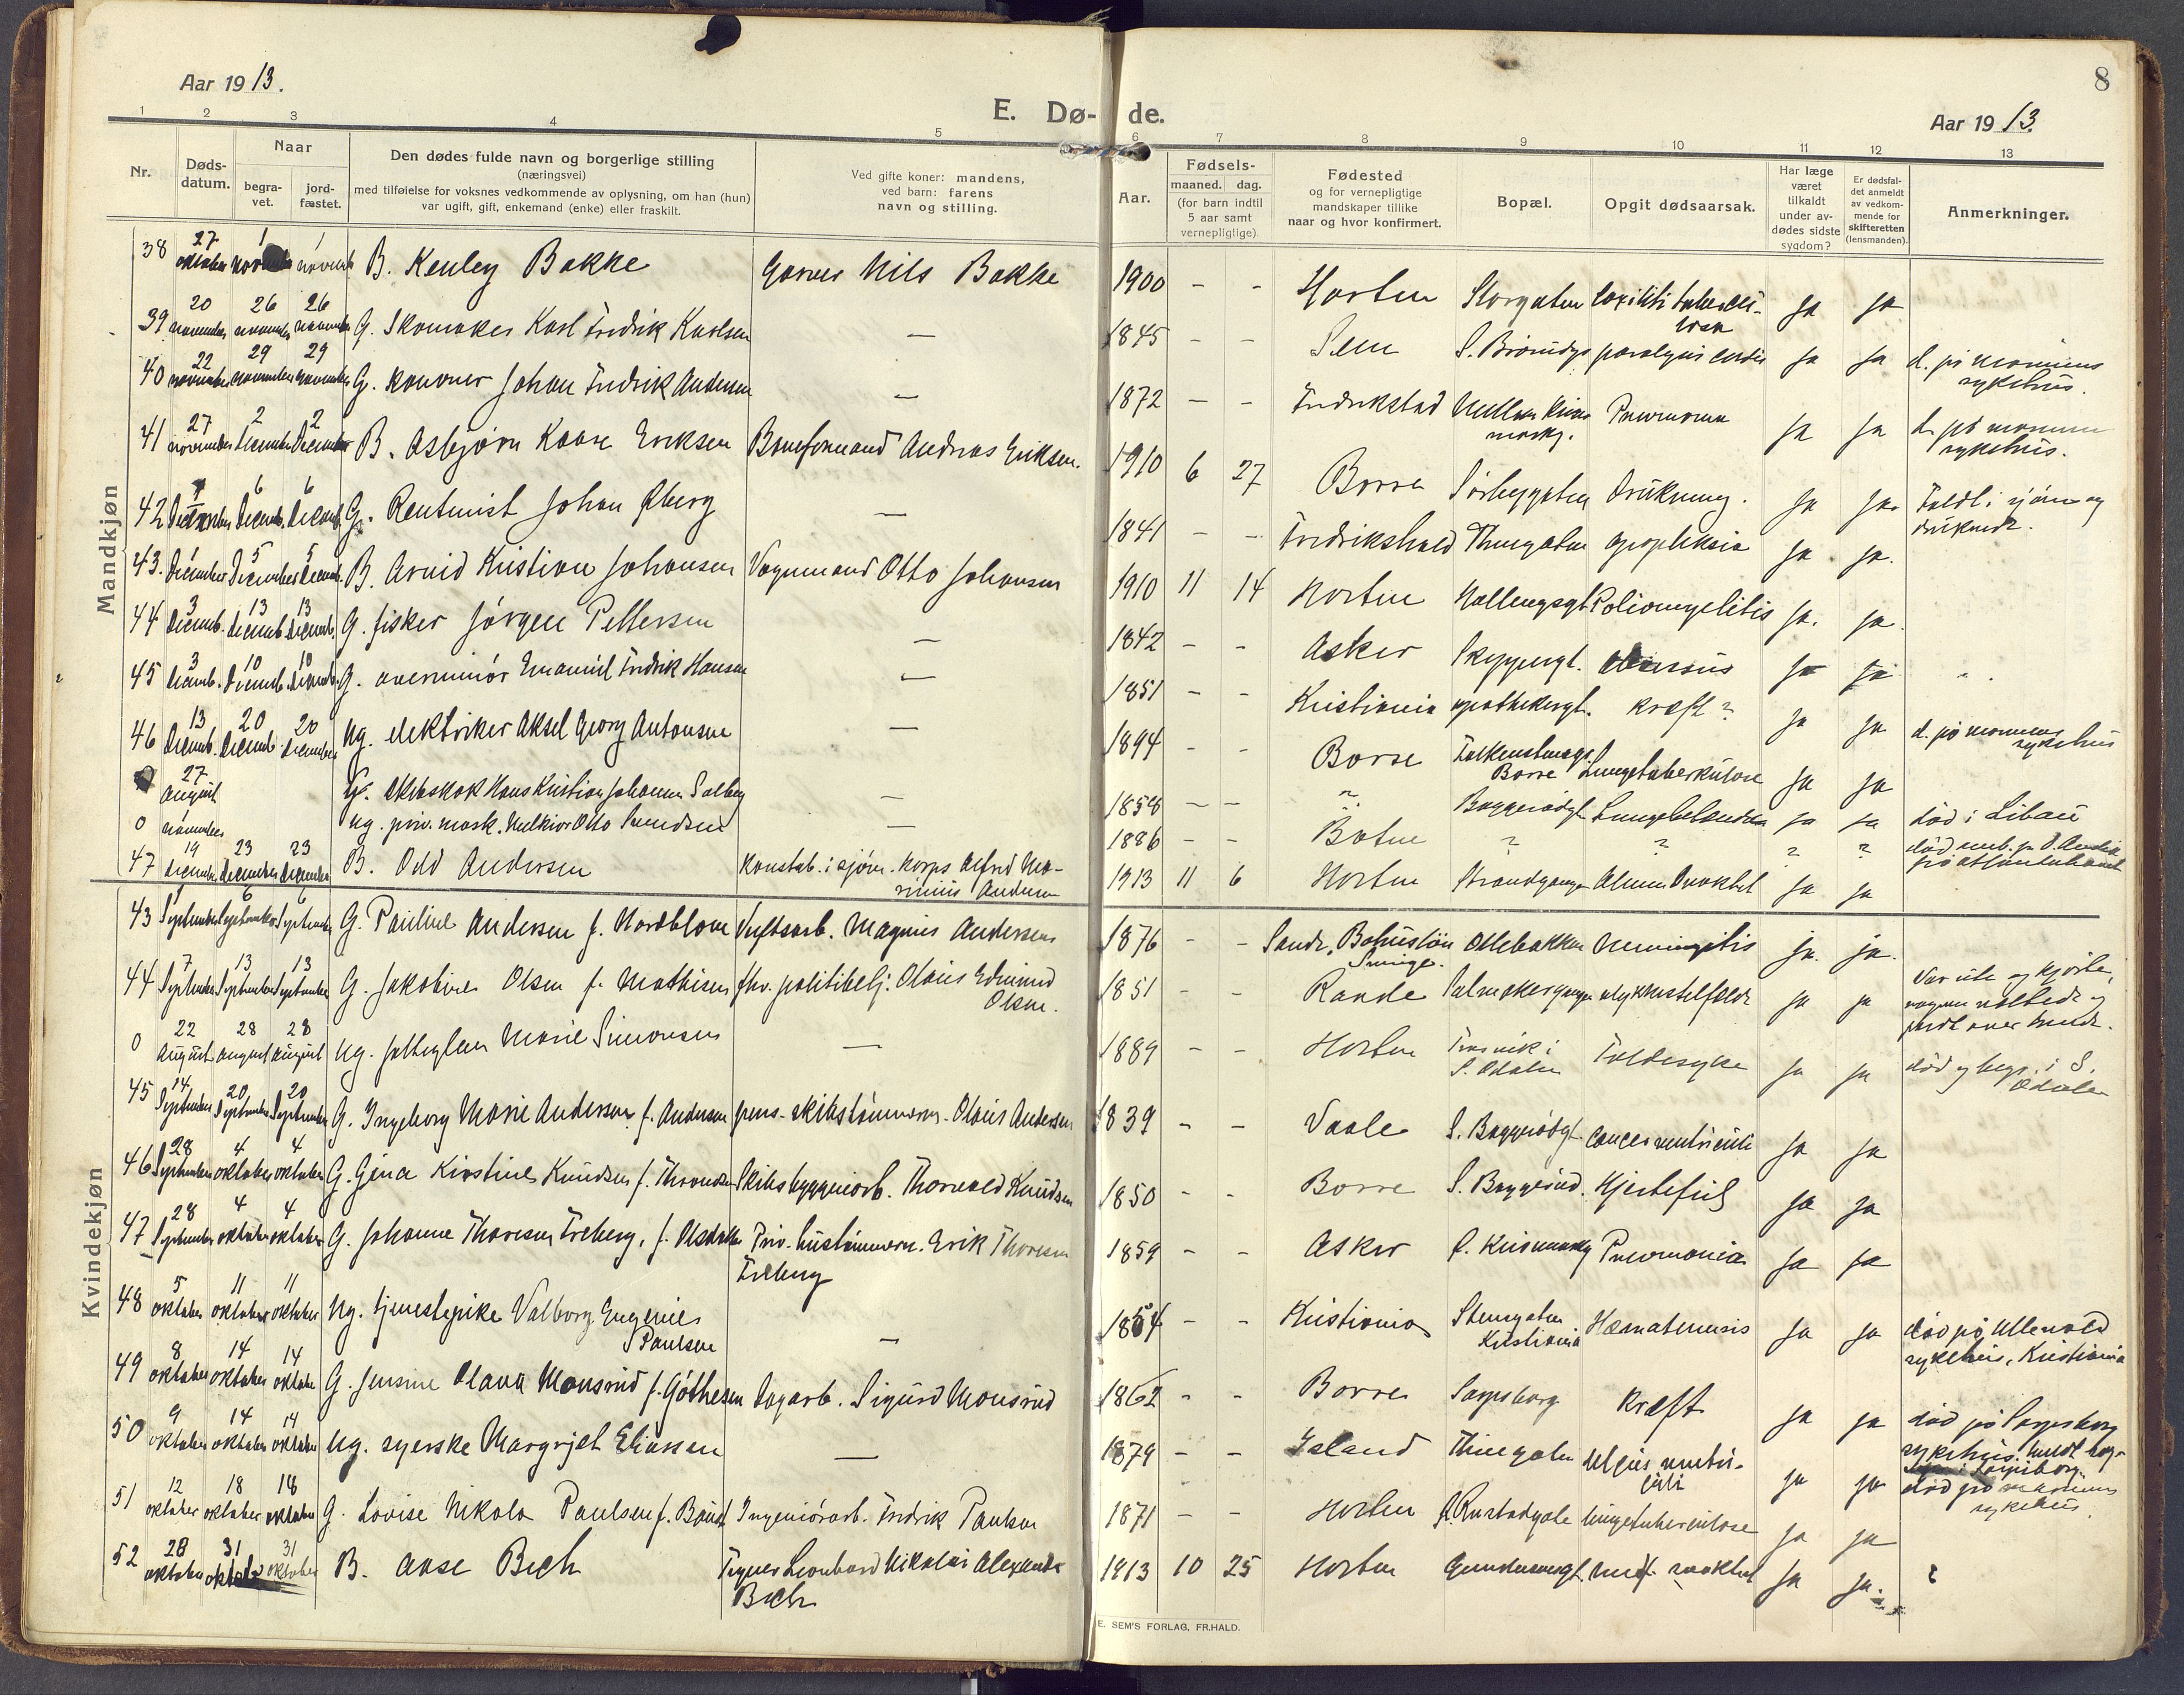 Aar 1913.
E. Dø- de.
8
Aar 1913.
1 2 3 4 5 6 7 8 9 10 11 12 13
Nr.
Døds-
datum.
Naar
begra-
vet.
jord-
fæstet.
Den dødes fulde navn og borgerlige stilling
(næringsvei)
med tilføielse for voksnes vedkommende av oplysning, om han (hun)
var ugift, gift, enkemand (enke) eller fraskilt.
Ved gifte koner: mandens,
ved barn: farens
navn og stilling.
Aar.
Fødsels-
maaned. dag.
(for barn indtil
5 aar samt
vernepligtige).
Fødested
og for vernepligtige
mandskaper tillike
naar og hvor konfirmert.
Bopæl.
Opgit dødsaarsak.
Har læge
været
tilkaldt
under av-
dødes sidste
sygdom?
Er dødsfal-
det anmeldt
av vedkom-
mende for
skifteretten
(lensmanden).
Anmerkninger.
Mandkjøn
38 27 oktober 1 november 1 novemb B. Kenley Bakke Garver Nils Bakke 1900 - - Horten Storgaten tubercu-
losa ja ja
39 20 november 26 november 26 november G. Skomaker Karl Fredrik Karlsen — 1845 - - Sem paralysis cordis ja ja d. på marinens
sykehus.
40 22 november 29 november 29 november G. Johan Fredrik Andersen — 1872 - - Fredrikstad Pneumonia ja ja d. på marinens
sykehus.
41 27 november 2 December 2 December B. Asbjørn Kaare Eriksen Baneformand Andreas Eriksen. 1910 6 27 Borre Drukning. ja ja Faldt i sjøen og
druknede.
42 December 6 Decemb. 6 Decemb. G. Rentenist Johan Øberg — 1841 - - Fredrikshald Thuegaten apopleksia ja ja.
43. 1 December 5 December 5 Decemb. B. Arvid Kristian Johansen Vognmand Otto Johansen 1910 11 14 Horten Poliomyelitis ja. ja.
44 3 Decemb. 13 Decemb. 13 Decemb. G. fisker Jørgen Pettersen — 1842 - - Asker Skippergt. ja ja
45 3 Decemb. 10 Decemb. 10 Decemb. G. overminør Emanuel Fredrik Hansen — 1851 - - Kristiania apothekergt. kræft? ja ja d. på marinens
sykehus
46 13 Decemb. 20 Decemb. 20 December Ug. elektriker Aksel Georg Antonsen — 1894 - - Borre Falkenstensgt.
Borre Lungetuberkulose ja ja
27 august G. skibskok Hans Kristian Johannes Solberg — 1858 - - ? Baggerødgt. Lungebetændelse ja ja død i Libau
0 november ug. prin. mask. Melkior Otto Svendsen — 1886 - - Botne ? ? ? ?
47 19 December 23 December 23 December B. Odd Andersen Konstab. i sjøm. korps Alfred Ma-
rinius Andersen 1913 11 6 Horten ja ja
Kvindekjøn
43 1 September 6 September 6 September G. Pauline Andersen f. Nordblom Verftsarb. Magnus Andersen 1876 - - Bohuslän
Sverige. Ollebakken Meningitis ja. ja.
44 7 September 13 September 13 September G. Jakobine Olsen f. Mathisen fhv. politibetj. Olaus Edmund
Olsen. 1851 - - Rande ulykkestilfælde ja ja Var ute og kjørte,
vognen væltede og
faldt over hende.
0 22 August 28 august 28 august ug. Marie Simonsen — 1889 - - Horten
S. Odalen Faldesyke ja ja død og begr. i S.
Odalen
45 14 September 20 September 20 September G. Ingeborg Marie Andersen f. Andersen pens. skibstømmerm. Olaus Andersen 1839 - - Vaale S. Baggerødgt. cancer ventriculi ja ja
46 28 September 4 oktober 4 oktober G. Gina Kirstine Knudsen f. Skibsbyggeriarb. Thorvald Knudsen 1850 - - Borre S. Baggerød. Hjertefeil ja ja
47 28 September 4 oktober 4 oktober G. Johanne Thoresen Freberg, f. Olsdatter Priv. hustømmerm. Erik Thoresen
Freberg 1859 - - Asker Pneumonia ja ja
48 5 oktober 11 oktober 11 oktober Ug. tjenestepike Valborg Eugenie
Paulsen — 1864 - - Kristiania Stensgaten
Kristiania Hæmatemesis ja ja død på Ullevold
sykehus, Kristiania
49 8 oktober 14 oktober 14 oktober G. Jensine Olava Monsrud f. Göthesen Dagarb. Sigurd Monsrud 1862 - - Borre Sarpsborg Kræft ja ja død på Sarpsborg
sykehus.
50 9 oktober 14 oktober 14 oktober Ug. syerske Margrjet Eliassen — 1879 - - Island Thuegaten ulcus ventri-
culi ja ja død på marinens
sykehus
51 12 oktober 18 oktober 18 oktober G. Lovise Nikola Paulsen f. Ingeniørarb. Fredrik Paulsen 1871 - - Horten lungetuberculose ja ja
52 28 oktober 31 oktober 31 oktober B. Aase Bech Leonhard Nikolai Alexander
Bech 1913 10 25 Horten medf. svakhet ja ja.
E. SEM'S FORLAG, FR.HALD.